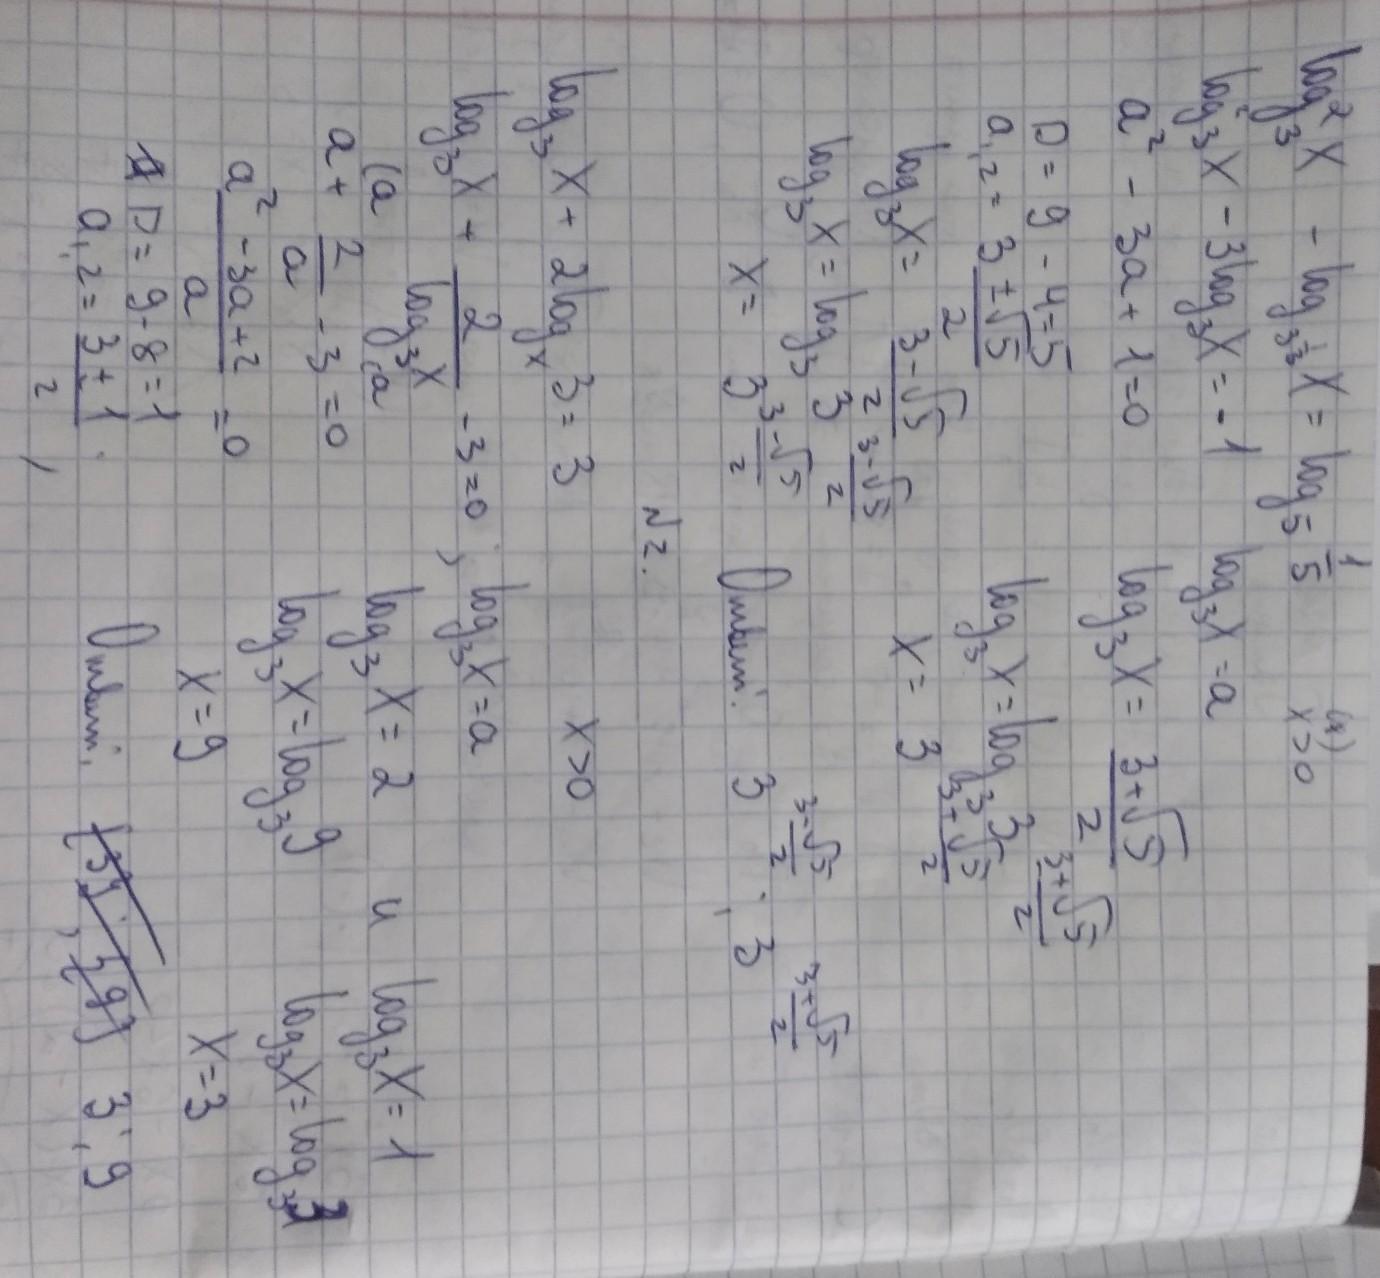 log₃²x - log_{3^{1/3}} x = log₅ 1/5 (x) x>0
log₃²x - 3log₃x = -1 log₃x = a
a² - 3a + 1 = 0 log₃x = (3+√5)/2
D = 9 - 4 = 5
a₁,₂ = (3±√5)/2 log₃x = log₃3^{(3+√5)/2}
log₃x = (3-√5)/2 x = 3^{(3+√5)/2}
log₃x = log₃3^{(3-√5)/2}
x = 3^{(3-√5)/2} Ответ: 3^{(3-√5)/2}; 3^{(3+√5)/2}
N2.
log₃x + 2logₓ3 = 3 x>0
log₃x + 2/log₃x - 3 = 0; log₃x = a
(a a log₃x = 2 и log₃x = 1
a + 2/a - 3 = 0 log₃x = log₃9 log₃x = log₃3
(a² - 3a + 2)/a = 0 x = 9 x = 3
D = 9 - 8 = 1
a₁,₂ = (3±1)/2, Ответ: {3}; {9} 3; 9